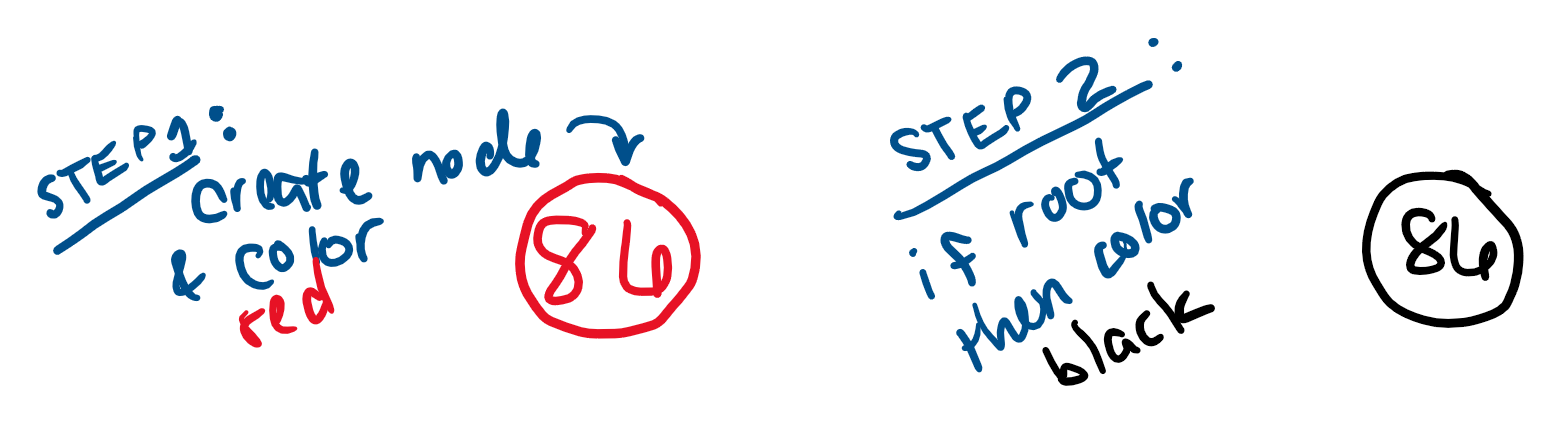 STEP 1:
create node
& color
red
86
STEP 2:
if root
then color
black
86